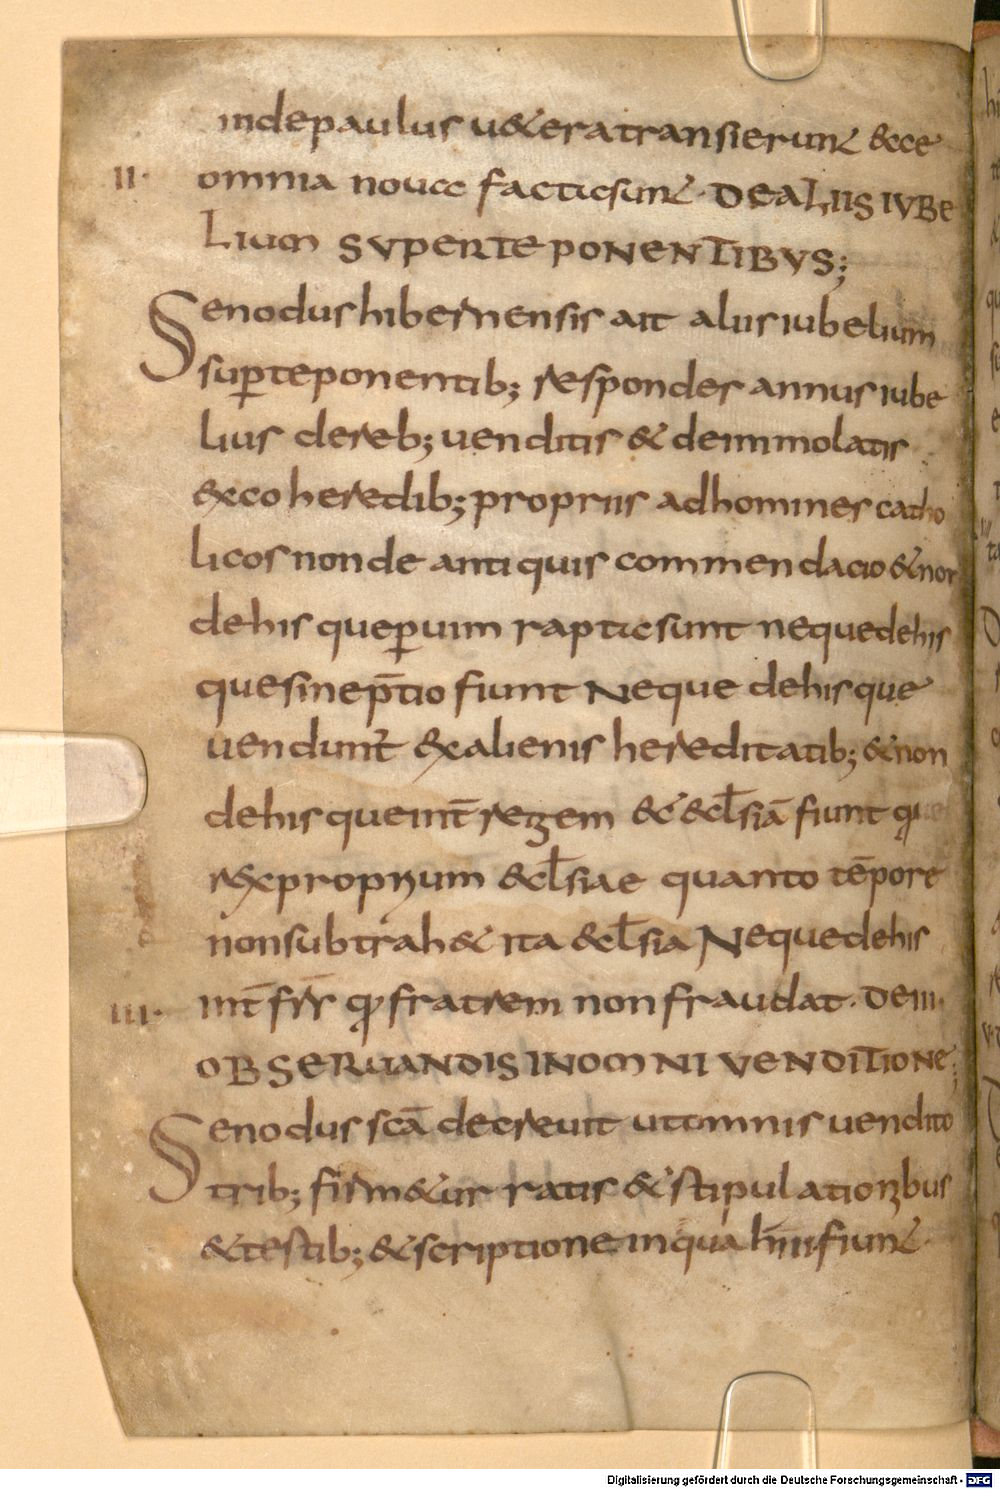 indepaulus uetera transierunt & ecce
II· omnia noua facta sunt· DE ALIIS IVBE
LIUM SVPER TE PONENTIBVS;
Senodus hibernensis ait alus iubelium
sup̲ te ponentib; responder annus iube
lius dereb; uenditis & deimmolatis
excoheredib; propriis adhomines catho
licos non de antiquis commendacio & non
dehis que p̲ uim rapta sunt neque dehis
quesinep̄tio fiunt Neque dehis que
uendunt exalienis hereditatib; & non
dehis que int̄ regem & &cl̄siā fiunt
rex proprium &cl̄siae quanto tēpore
non subtrah& ita &cl̄sia Neque dehis
III· int̄ fr̄r fratrem non fraudat· DE III·
OBSERUANDIS IN OMNI VENDITIONE;
Senodus scā decreuit ut omnis uendito
trib; firm&ur ratis & stipulationibus
& testib; & scriptione in qua h̄ IIII fiunt·
Digitalisierung gefördert durch die Deutsche Forschungsgemeinschaft - DFG